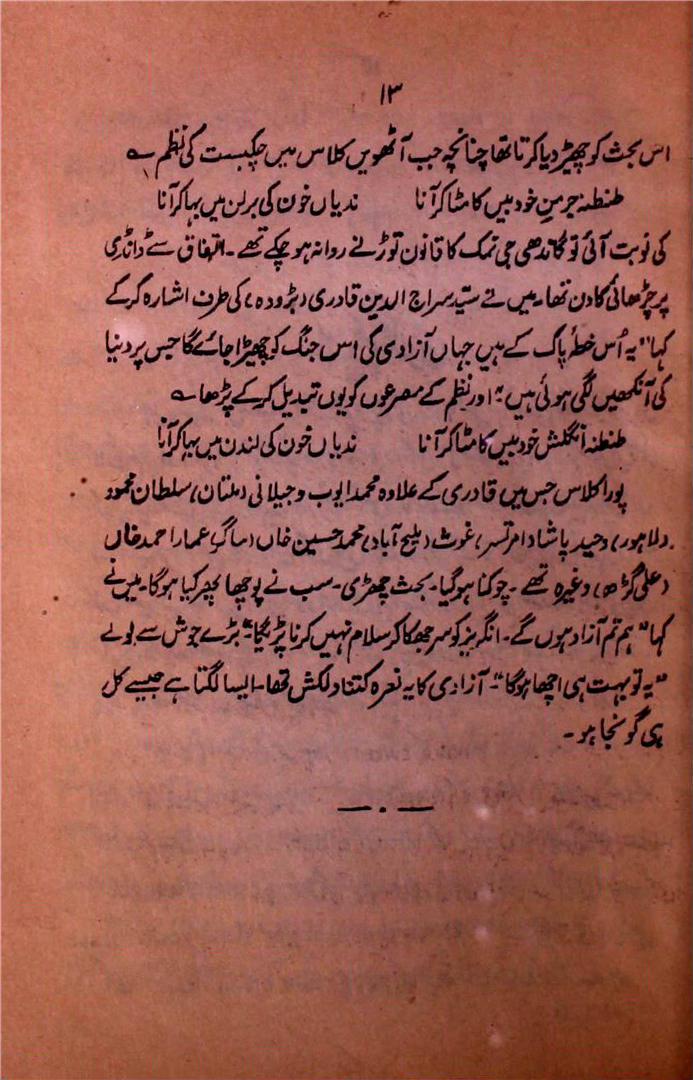 ۱۳
اس بحث کو چھیڑ دیا کرتا تھا چنانچہ جب آٹھویں کلاس میں چکبست کی نظم ؎
طنطنہ جرمنِ خود بیں کا مٹا کر آنا ندیاں خون کی برلن میں بہا کر آنا
کی نوبت آئی تو گاندھی جی نمک کا قانون توڑنے روانہ ہو چکے تھے۔ اتفاق سے ڈانڈی
پر چڑھائی کا دن تھا۔ میں نے سید سراج الدین قادری (بڑودہ) کی طرف اشارہ کرکے
کہا "یہ اُس خطۂ پاک کے ہیں جہاں آزادی کی اس جنگ کو چھیڑا جائے گا جس پر دنیا
کی آنکھیں لگی ہوئی ہیں" اور نظم کے مصرعوں کو یوں تبدیل کرکے پڑھا ؎
طنطنہ انگلش خود بیں کا مٹا کر آنا ندیاں خون کی لندن میں بہا کر آنا
پورا کلاس جس میں قادری کے علاوہ محمد ایوب و جیلانی (ملتان) سلطان محمود
(لاہور) وحید پاشا (امرتسر) غوث (ملیح آباد) محمد حسین خاں (ساگر) عمار احمد خاں
(علی گڑھ) وغیرہ تھے۔ چوکنا ہوگیا۔ بحث چھڑی۔ سب نے پوچھا پھر کیا ہوگا۔ میں نے
کہا "ہم تم آزاد ہوں گے۔ انگریز کو سر جھکا کر سلام نہیں کرنا پڑیگا" بڑے جوش سے بولے
"یہ تو بہت ہی اچھا ہوگا"۔ آزادی کا یہ نعرہ کتنا دلکش تھا۔ ایسا لگتا ہے جیسے کل
ہی گونجا ہو۔